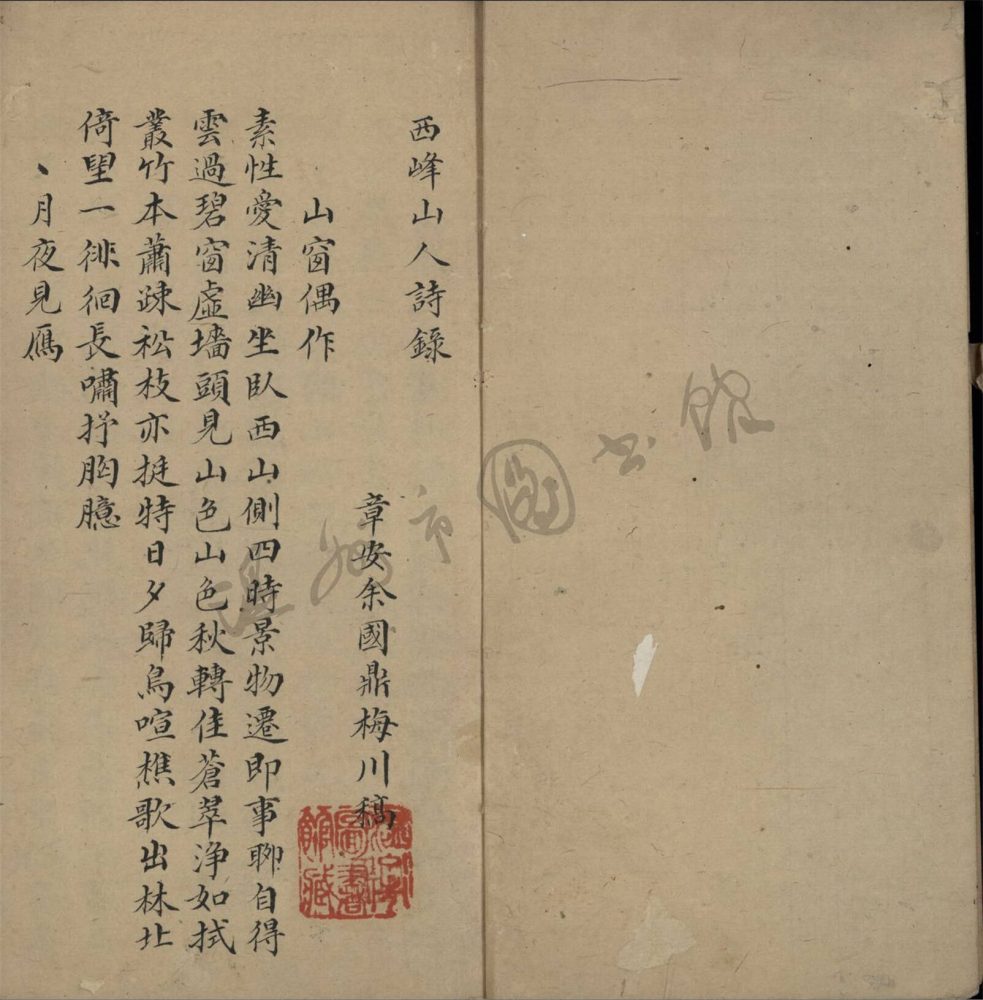 西峰山人詩錄
章安余國鼎梅川稿
山窗偶作
素性愛清幽坐臥西山側四時景物遷即事聊自得
雲過碧窗虛墻頭見山色山色秋轉佳蒼翠淨如拭
叢竹本蕭疎松枝亦挺特日夕歸鳥喧樵歌出林北
倚望一徘徊長嘯抒胸臆
丶月夜見鴈
溫州市圖書館
溫州市圖書館藏